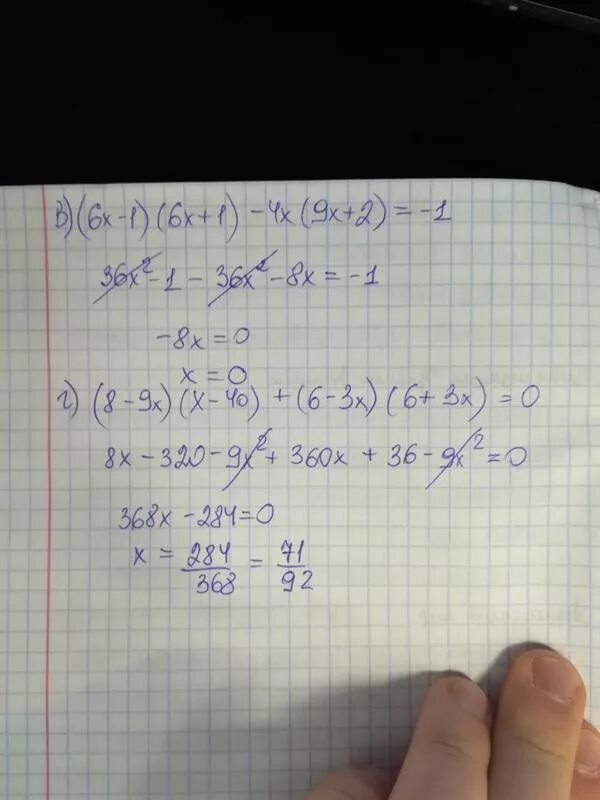 в) (6x-1)(6x+1) -4x(9x+2) = -1
36x² -1 - 36x² -8x = -1
-8x = 0
x = 0
г) (8-9x)(x-40) + (6-3x)(6+3x) = 0
8x - 320 - 9x² + 360x + 36 - 9x² = 0
368x - 284 = 0
x = 284/368 = 71/92